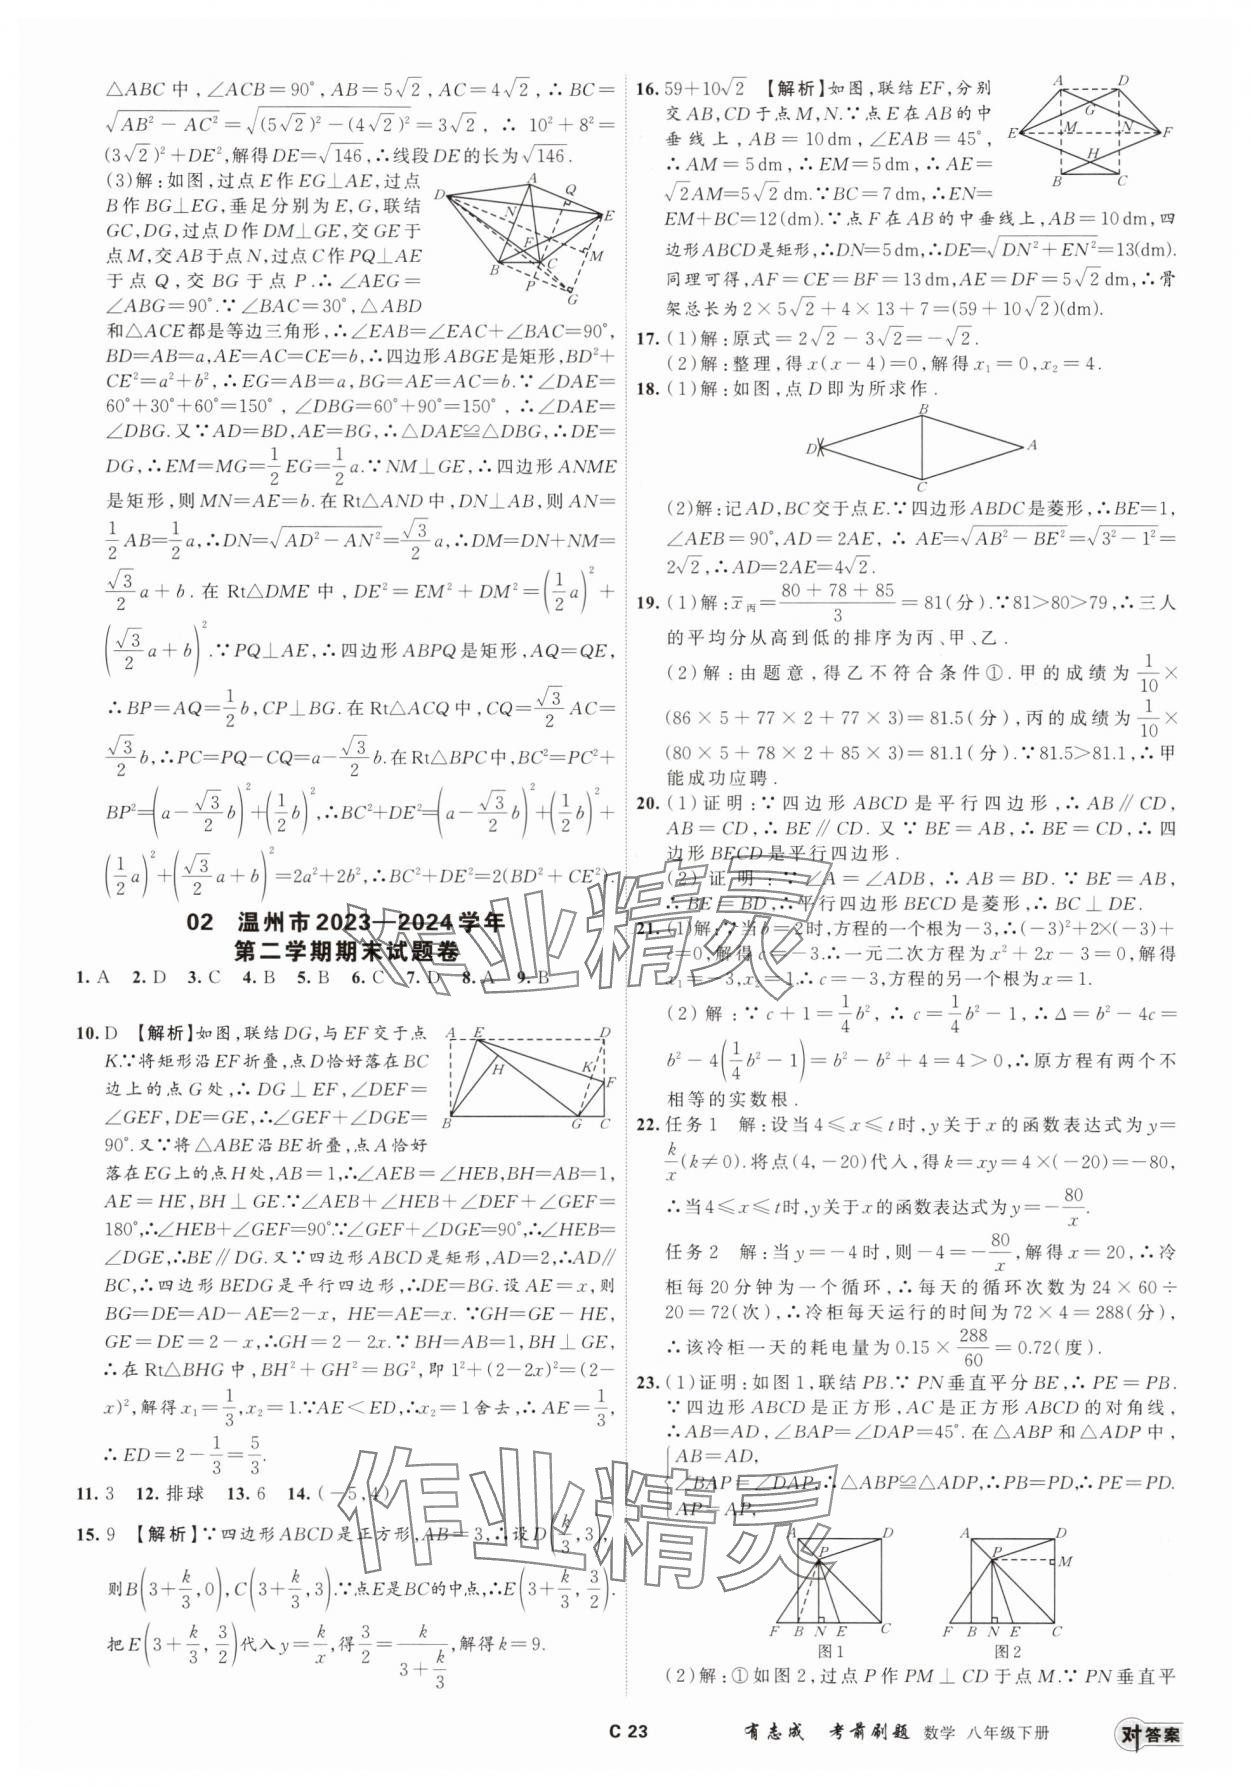 △ABC中,∠ACB=90°,AB=5√2,AC=4√2,∴BC=
√(AB²-AC²)=√((5√2)²-(4√2)²)=3√2,∴10²+8²=
(3√2)²+DE²,解得DE=√146,∴线段DE的长为√146.
(3)解:如图,过点E作EG⊥AE,过点
B作BG⊥EG,垂足分别为E,G,联结
GC,DG,过点D作DM⊥GE,交GE于
点M,交AB于点N,过点C作PQ⊥AE
于点Q,交BG于点P.∴∠AEG=
∠ABG=90°.∵∠BAC=30°,△ABD
和△ACE都是等边三角形,∴∠EAB=∠EAC+∠BAC=90°,
BD=AB=a,AE=AC=CE=b,∴四边形ABGE是矩形,BD²+
CE²=a²+b²,∴EG=AB=a,BG=AE=AC=b.∵∠DAE=
60°+30°+60°=150°,∠DBG=60°+90°=150°,∴∠DAE=
∠DBG.又∵AD=BD,AE=BG,∴△DAE≌△DBG,∴DE=
DG,∴EM=MG=1/2EG=1/2a.∵NM⊥GE,∴四边形ANME
是矩形,则MN=AE=b.在Rt△AND中,DN⊥AB,则AN=
1/2AB=1/2a,∴DN=√(AD²-AN²)=√3/2a,∴DM=DN+NM=
√3/2a+b.在Rt△DME中,DE²=EM²+DM²=(1/2a)²+
(√3/2a+b)².∵PQ⊥AE,∴四边形ABPQ是矩形,AQ=QE,
∴BP=AQ=1/2b,CP⊥BG.在Rt△ACQ中,CQ=√3/2AC=
√3/2b,∴PC=PQ-CQ=a-√3/2b.在Rt△BPC中,BC²=PC²+
BP²=(a-√3/2b)²+(1/2b)²,∴BC²+DE²=(a-√3/2b)²+(1/2b)²+
(1/2a)²+(√3/2a+b)²=2a²+2b²,∴BC²+DE²=2(BD²+CE²).
02 温州市2023—2024学年
第二学期期末试题卷
1. A 2. D 3. C 4. B 5. B 6. C 7. D 8. A 9. B
10. D 【解析】如图,联结DG,与EF交于点
K.∵将矩形沿EF折叠,点D恰好落在BC
边上的点G处,∴DG⊥EF,∠DEF=
∠GEF,DE=GE,∴∠GEF+∠DGE=
90°.又∵将△ABE沿BE折叠,点A恰好
落在EG上的点H处,AB=1,∴∠AEB=∠HEB,BH=AB=1,
AE=HE,BH⊥GE.∵∠AEB+∠HEB+∠DEF+∠GEF=
180°,∴∠HEB+∠GEF=90°∵∠GEF+∠DGE=90°,∴∠HEB=
∠DGE,∴BE∥DG.又∵四边形ABCD是矩形,AD=2,∴AD∥
BC,∴四边形BEDG是平行四边形,∴DE=BG.设AE=x,则
BG=DE=AD-AE=2-x, HE=AE=x.∵GH=GE-HE,
GE=DE=2-x,∴GH=2-2x.∵BH=AB=1,BH⊥GE,
∴在Rt△BHG中,BH²+GH²=BG²,即1²+(2-2x)²=(2-
x)²,解得x₁=1/3,x₂=1.∵AE<ED,∴x₂=1舍去,∴AE=1/3,
∴ED=2-1/3=5/3.
11. 3 12. 排球 13. 6 14. (-5,4)
15. 9 【解析】∵四边形ABCD是正方形,AB=3,∴设D(k/3,3),
则B(3+k/3,0),C(3+k/3,3).∵点E是BC的中点,∴E(3+k/3,3/2).
把E(3+k/3,3/2)代入y=k/x,得3/2=k/(3+k/3),解得k=9.
16. 59+10√2 【解析】如图,联结EF,分别
交AB,CD于点M,N.∵点E在AB的中
垂线上,AB=10dm,∠EAB=45°,
∴AM=5dm,∴EM=5dm,∴AE=
√2AM=5√2dm.∵BC=7dm,∴EN=
EM+BC=12(dm).∵点F在AB的中垂线上,AB=10dm,四
边形ABCD是矩形,∴DN=5dm,∴DE=√(DN²+EN²)=13(dm).
同理可得,AF=CE=BF=13dm,AE=DF=5√2dm,∴骨
架总长为2×5√2+4×13+7=(59+10√2)(dm).
17. (1)解:原式=2√2-3√2=-√2.
(2)解:整理,得x(x-4)=0,解得x₁=0,x₂=4.
18. (1)解:如图,点D即为所求作.
(2)解:记AD,BC交于点E.∵四边形ABDC是菱形,∴BE=1,
∠AEB=90°,AD=2AE,∴AE=√(AB²-BE²)=√(3²-1²)=
2√2,∴AD=2AE=4√2.
19. (1)解:x̄丙=(80+78+85)/3=81(分).∵81>80>79,∴三人
的平均分从高到低的排序为丙、甲、乙.
(2)解:由题意,得乙不符合条件①.甲的成绩为1/10×
(86×5+77×2+77×3)=81.5(分),丙的成绩为1/10×
(80×5+78×2+85×3)=81.1(分).∵81.5>81.1,∴甲
能成功应聘.
20. (1)证明:∵四边形ABCD是平行四边形,∴AB∥CD,
AB=CD,∴BE∥CD.又∵BE=AB,∴BE=CD,∴四
边形BECD是平行四边形.
(2)证明:∵∠A=∠ADB,∴AB=BD.∵BE=AB,
∴BE=BD,∴平行四边形BECD是菱形,∴BC⊥DE.
21. (1)解:∵当b=2时,方程的一个根为-3,∴(-3)²+2×(-3)+
c=0,解得c=-3.∴一元二次方程为x²+2x-3=0,解得
x₁=-3,x₂=1.∴c=-3,方程的另一个根为x=1.
(2)解:∵c+1=1/4b²,∴c=1/4b²-1,∴Δ=b²-4c=
b²-4(1/4b²-1)=b²-b²+4=4>0,∴原方程有两个不
相等的实数根.
22. 任务1 解:设当4≤x≤t时,y关于x的函数表达式为y=
k/x(k≠0).将点(4,-20)代入,得k=xy=4×(-20)=-80,
∴当4≤x≤t时,y关于x的函数表达式为y=-80/x.
任务2 解:当y=-4时,则-4=-80/x,解得x=20,∴冷
柜每20分钟为一个循环,∴每天的循环次数为24×60÷
20=72(次),∴冷柜每天运行的时间为72×4=288(分),
∴该冷柜一天的耗电量为0.15×288/60=0.72(度).
23. (1)证明:如图1,联结PB.∵PN垂直平分BE,∴PE=PB.
∵四边形ABCD是正方形,AC是正方形ABCD的对角线,
∴AB=AD,∠BAP=∠DAP=45°.在△ABP和△ADP中,
AB=AD,
∠BAP=∠DAP,∴△ABP≌△ADP,∴PB=PD,∴PE=PD.
AP=AP,
图1 图2
(2)解:①如图2,过点P作PM⊥CD于点M.∵PN垂直平
C 23 有志成 考前刷题 数学 八年级下册 对答案
作业精灵
作业精灵